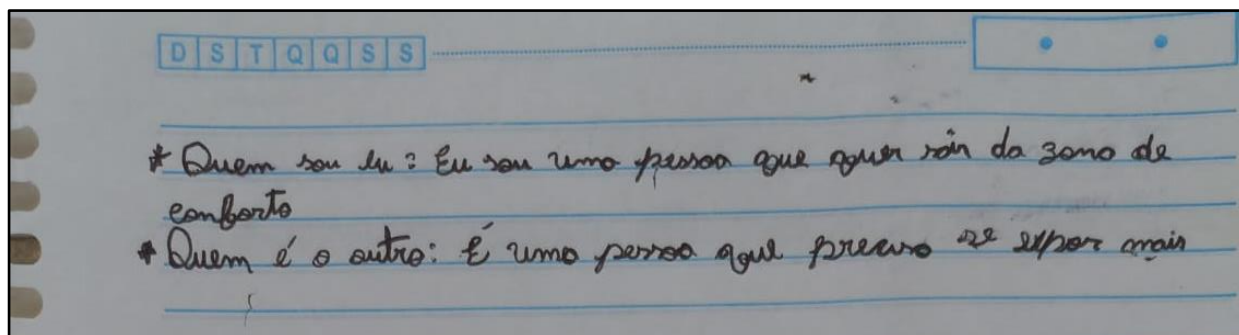 D S T Q Q S S
* Quem sou eu: Eu sou uma pessoa que quer sair da zona de
conforto
* Quem é o outro: É uma pessoa que precisa se expor mais